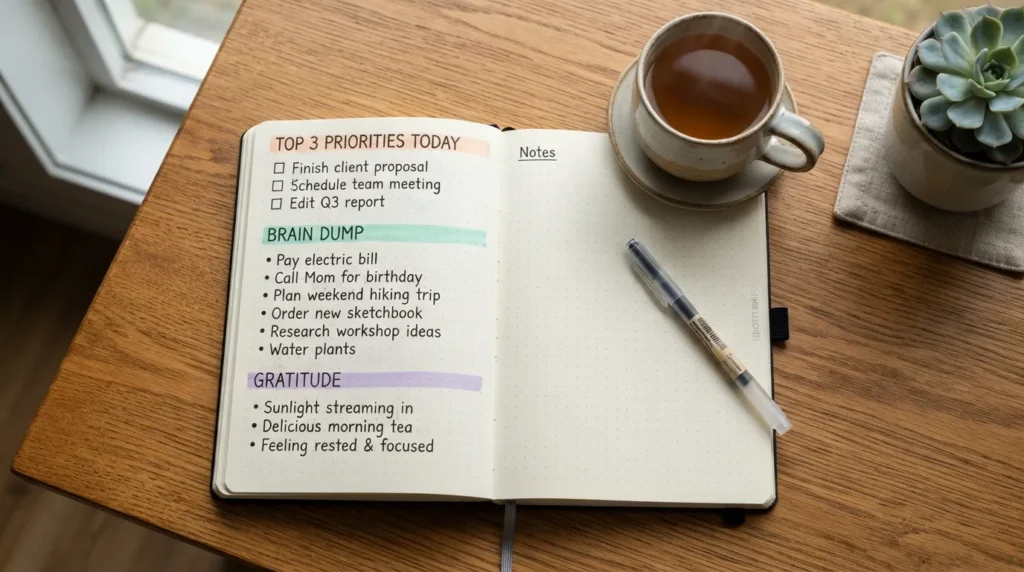 TOP 3 PRIORITIES TODAY
☐ Finish client proposal
☐ Schedule team meeting
☐ Edit Q3 report
BRAIN DUMP
• Pay electric bill
• Call Mom for birthday
• Plan weekend hiking trip
• Order new sketchbook
• Research workshop ideas
• Water plants
GRATITUDE
• Sunlight streaming in
• Delicious morning tea
• Feeling rested & focused
Notes